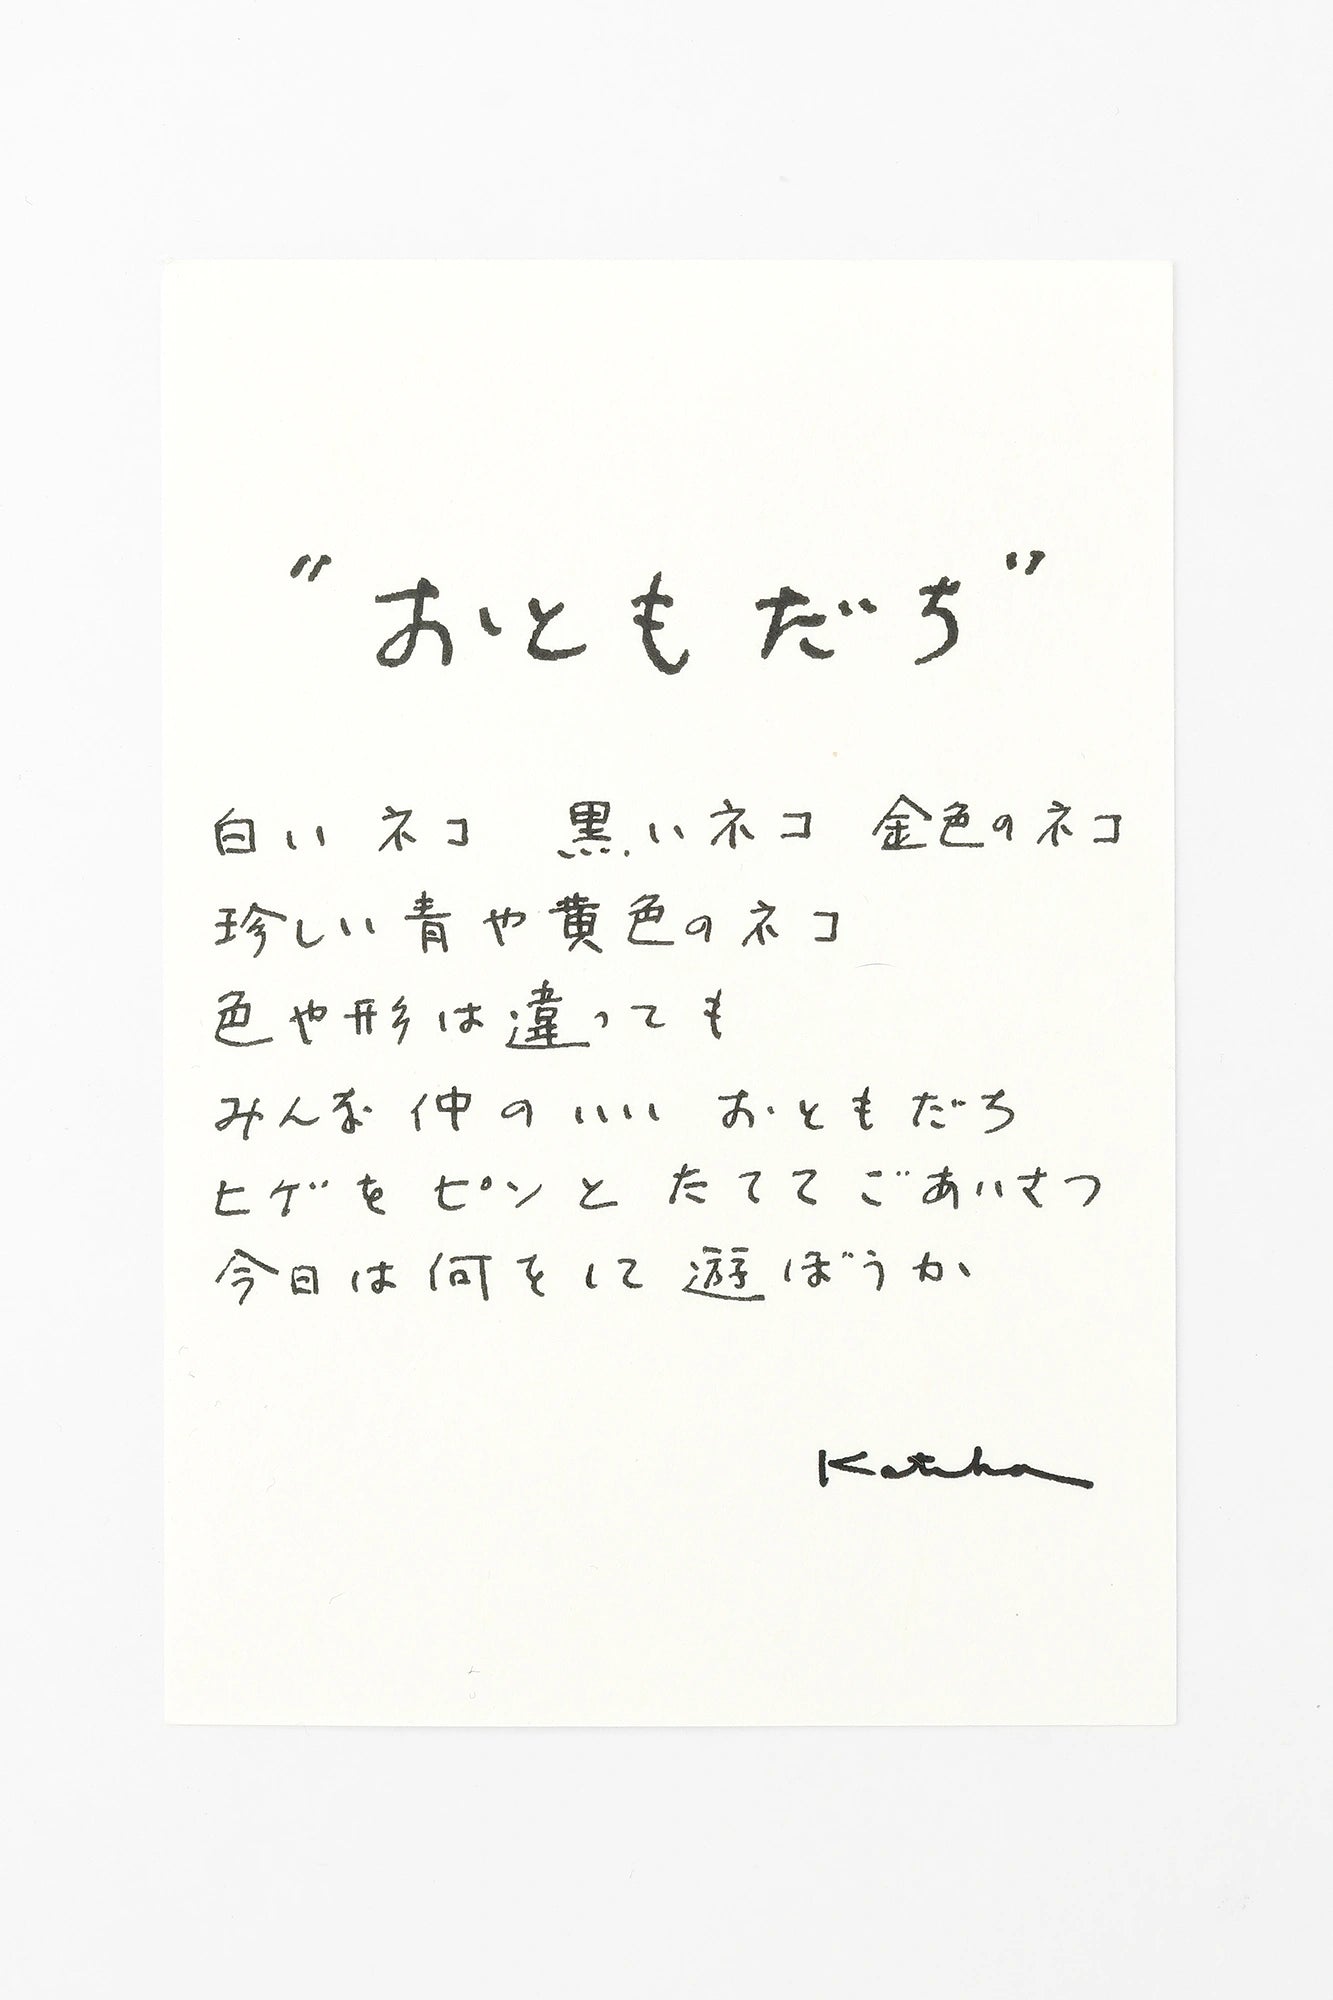 "おともだち"
白いネコ 黒いネコ 金色のネコ
珍しい青や黄色のネコ
色や形は違っても
みんな仲のいい おともだち
ヒゲを ピンと たてて ごあいさつ
今日は何をして遊ぼうか